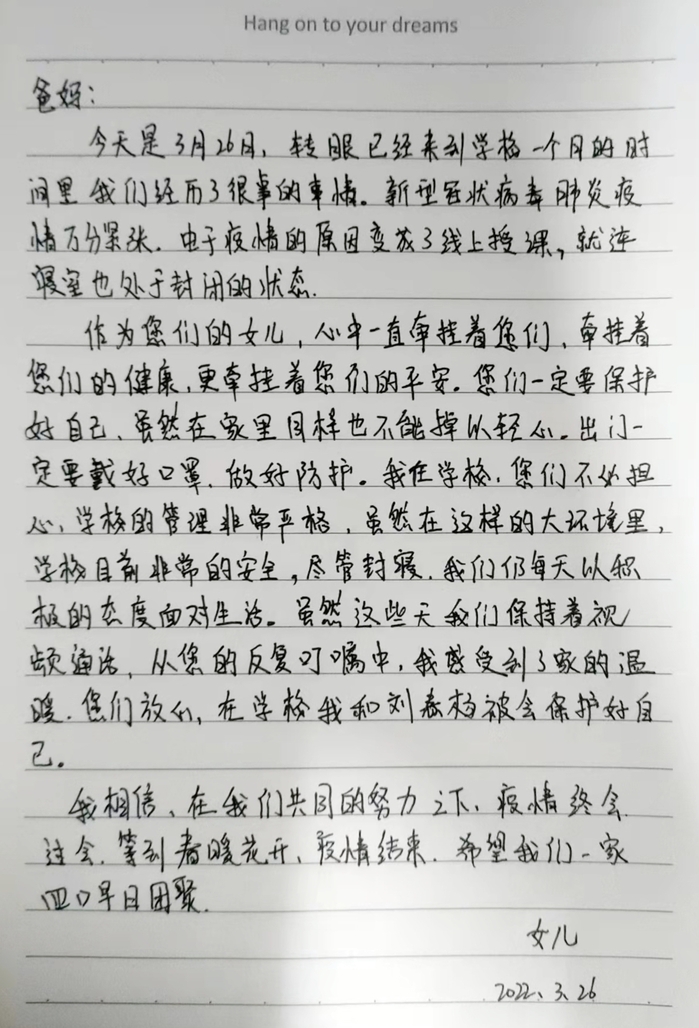 Hang on to your dreams
爸妈：
今天是3月26日，转眼已经来到学校一个月的时
间里我们经历了很多的事情。新型冠状病毒肺炎疫
情万分紧张.由于疫情的原因变成了线上授课，就连
寝室也处于封闭的状态.
作为您们的女儿，心中一直牵挂着您们，牵挂着
您们的健康，更牵挂着您们的平安。您们一定要保护
好自己、虽然在家里同样也不能掉以轻心。出门一
定要戴好口罩、做好防护。我在学校，您们不必担
心，学校的管理非常严格，虽然在这样的大环境里，
学校目前非常的安全，尽管封寝.我们仍每天以积
极的态度面对生活。虽然这些天我们保持着视
频通话，从您的反复叮嘱中，我感受到了家的温
暖.您们放心，在学校我和刘春杨都会保护好自
己。
我相信、在我们共同的努力之下、疫情终会
过去.等到春暖花开、疫情结束.希望我们一家
四口早日团聚.
女儿
2022.3.26